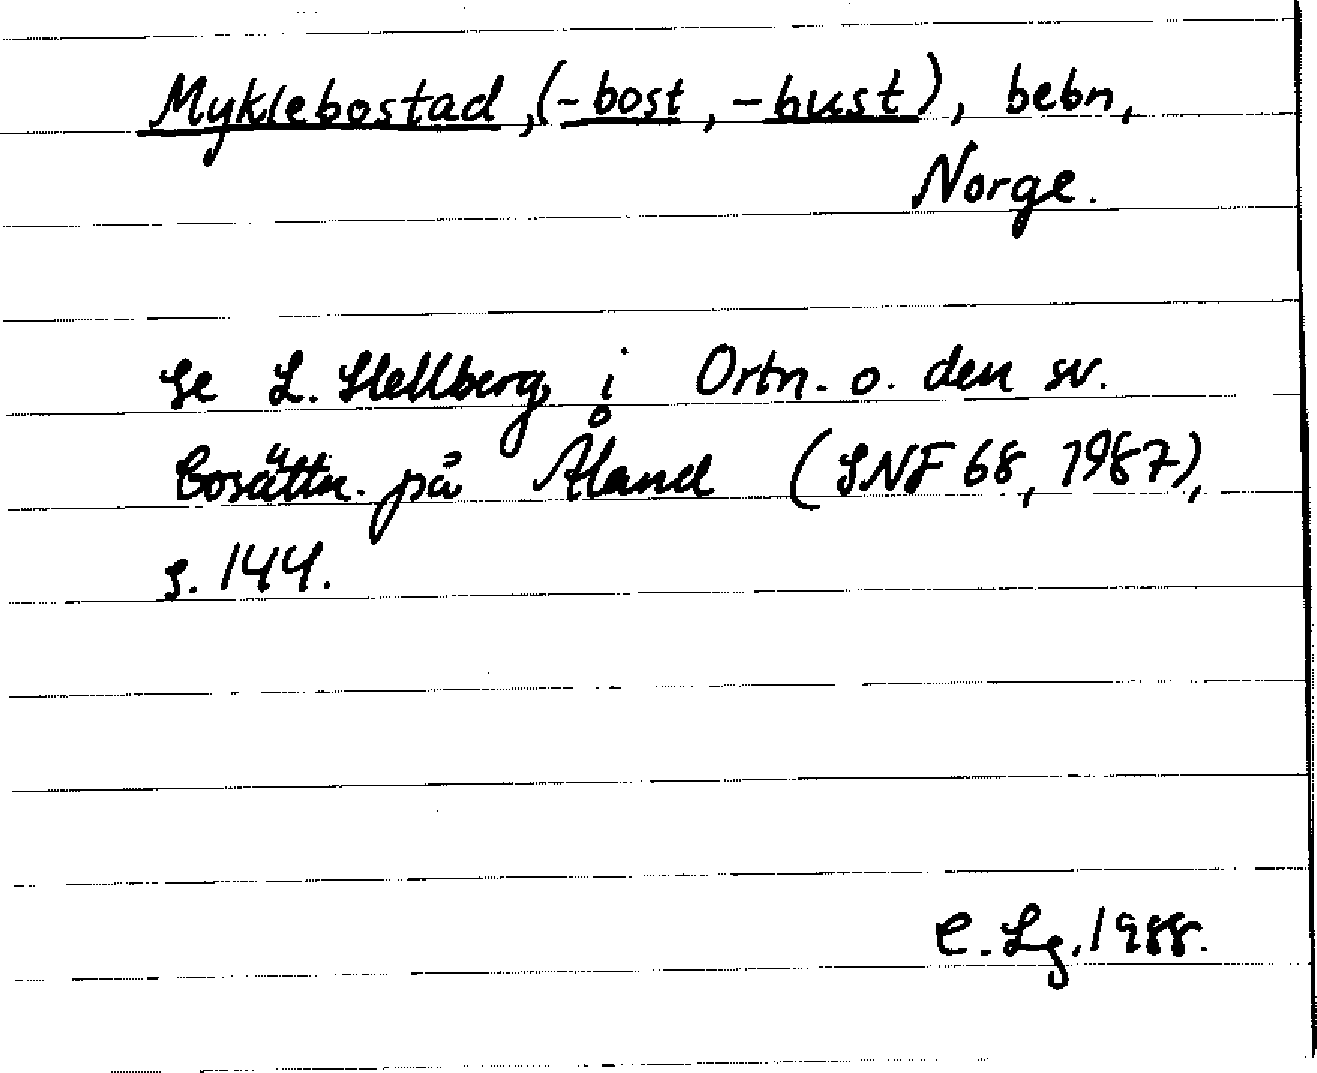 Myklebostad, (-bost, -bust), bebn,
Norge.
Se L. Hellberg, i Ortn. o. den sv.
bosättn. på Åland (SNF 68, 1987),
s. 144.
C. Lg. 1988.